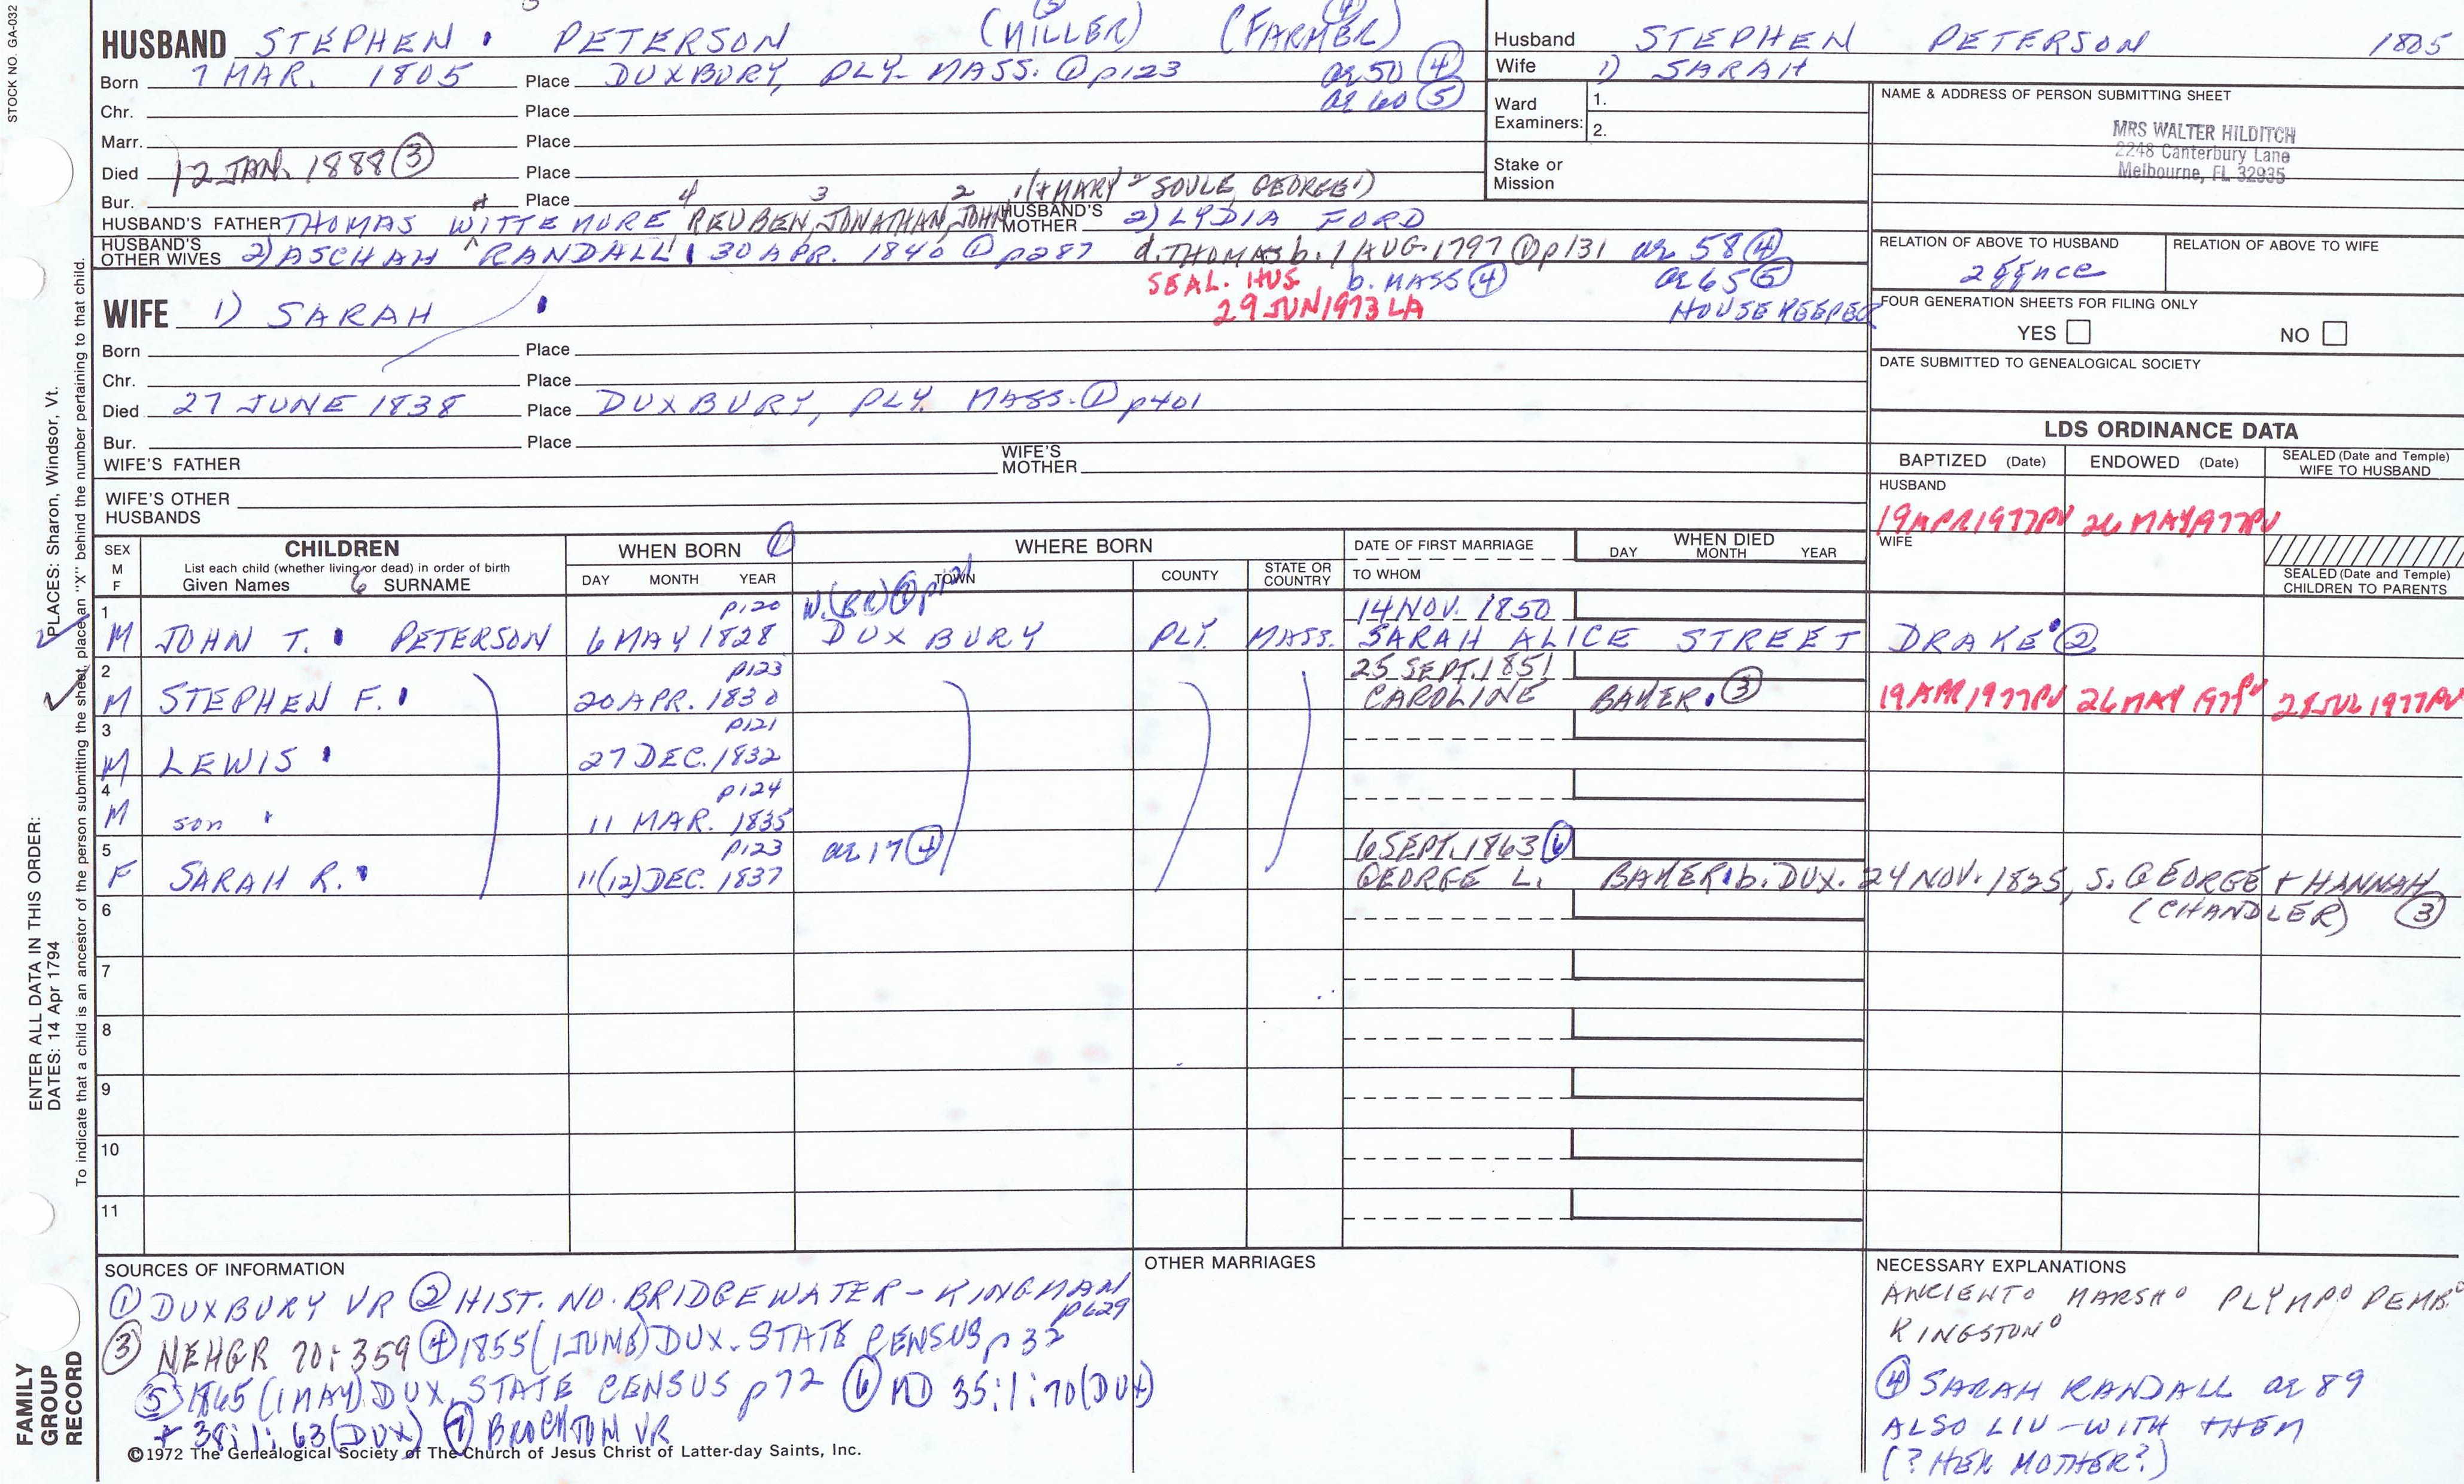 STOCK NO. GA-032
HUSBAND STEPHEN PETERSON (MILLER) (FARMER)
Born 7 MAR. 1805 Place DUXBURY, PLY. MASS. ① p123 ae 50 ④
ae 60 ⑤
Chr. Place
Marr. Place
Died 12 JAN. 1888 ③ Place
Bur. Place
4 3 2 1 (+ MARY 2 SOULE, GEORGE 1)
HUSBAND'S FATHER THOMAS WITTEMORE, REUBEN, JONATHAN, JOHN HUSBAND'S MOTHER 2) LYDIA FORD
HUSBAND'S OTHER WIVES 2) ASCHAH RANDALL 30 APR. 1840 ① p287 d. THOMAS b. 1 AUG. 1797 ① p131 ae 58 ④
SEAL. HUS. b. MASS ④ ae 65 ⑤
29 JUN 1973 LA HOUSEKEEPER
WIFE 1) SARAH
Born Place
Chr. Place
Died 27 JUNE 1838 Place DUXBURY, PLY. MASS. ① p401
Bur. Place
WIFE'S FATHER WIFE'S MOTHER
WIFE'S OTHER HUSBANDS
Husband STEPHEN PETERSON 1805
Wife 1) SARAH
Ward Examiners: 1.
2.
Stake or Mission
NAME & ADDRESS OF PERSON SUBMITTING SHEET
MRS WALTER HILDITCH
2248 Canterbury Lane
Melbourne, FL 32935
RELATION OF ABOVE TO HUSBAND RELATION OF ABOVE TO WIFE
FOUR GENERATION SHEETS FOR FILING ONLY
YES NO
DATE SUBMITTED TO GENEALOGICAL SOCIETY
LDS ORDINANCE DATA
BAPTIZED (Date) ENDOWED (Date) SEALED (Date and Temple) WIFE TO HUSBAND
HUSBAND
19 APR 1977 PV 26 MAY 1977 PV
WIFE
SEALED (Date and Temple) CHILDREN TO PARENTS
SEX M F CHILDREN WHEN BORN ① WHERE BORN DATE OF FIRST MARRIAGE WHEN DIED
List each child (whether living or dead) in order of birth
Given Names SURNAME DAY MONTH YEAR TOWN COUNTY STATE OR COUNTRY TO WHOM DAY MONTH YEAR
1 p120 14 NOV. 1850
M JOHN T. PETERSON 6 MAY 1828 DUXBURY PLY. MASS. SARAH ALICE STREET DRAKE ②
2 p123 25 SEPT. 1851
M STEPHEN F. 20 APR. 1830 CAROLINE BAKER ③ 19 APR 1977 PV 26 MAY 1977 PV 28 JUL 1977 PV
3 p121
M LEWIS 27 DEC. 1832
4 p124
M son 11 MAR. 1835
5 p123 ae 17 ④ 6 SEPT. 1863 ⑥
F SARAH R. 11(12) DEC. 1837 GEORGE L. BAKER b. DUX. 24 NOV. 1825, S. GEORGE + HANNAH
(CHANDLER) ③
6
7
8
9
10
11
SOURCES OF INFORMATION
① DUXBURY VR ② HIST. NO. BRIDGEWATER - KINGMAN
p629
③ NEHGR 70:359 ④ 1855 (1 JUNE) DUX. STATE CENSUS p 32
⑤ 1865 (1 MAY) DUX. STATE CENSUS p72 ⑥ MD 35:1:70 (DUX)
+ 38:1:63 (DUX) ⑦ BROCKTON VR
©1972 The Genealogical Society of The Church of Jesus Christ of Latter-day Saints, Inc.
OTHER MARRIAGES
NECESSARY EXPLANATIONS
MARSHº PLYMPº PEMBº
KINGSTONº
④ SARAH RANDALL ae 89
ALSO LIV - WITH THEM
(? HER MOTHER?)
FAMILY GROUP RECORD
ENTER ALL DATA IN THIS ORDER:
DATES: 14 Apr 1794
PLACES: Sharon, Windsor, Vt.
To indicate that a child is an ancestor of the person submitting the sheet, place an "X" behind the number pertaining to that child.